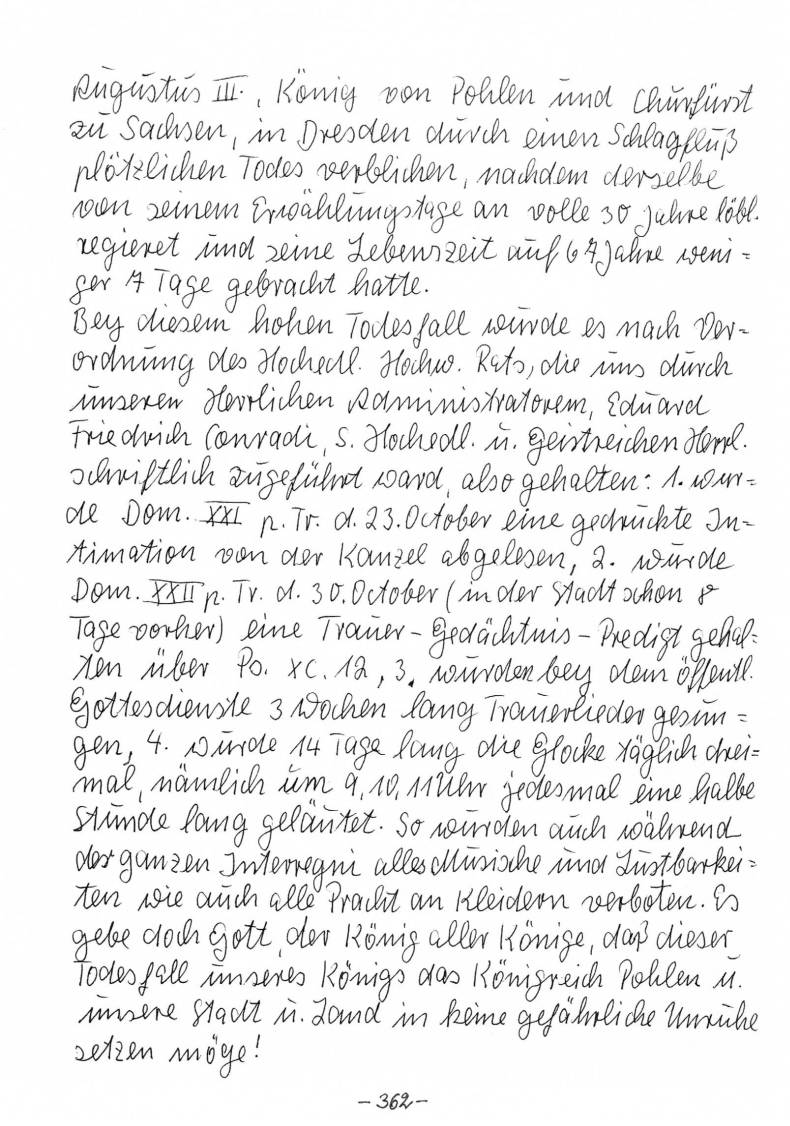 Augustus III., König von Pohlen und Churfürst
zu Sachsen, in Dresden durch einen Schlagfluß
plötzlichen Todes verblichen, nachdem derselbe
von seinem Erwählungstage an volle 30 Jahre löbl.
regieret und seine Lebenszeit auf 67 Jahre weni=
ger 7 Tage gebracht hatte.
Bey diesem hohen Todesfall wurde es nach Ver=
ordnung des Hochedl. Hochw. Rats, die uns durch
unseren Herrlichen Administratorem, Eduard
Friedrich Conradi, S. Hochedl. u. Geistreichen Herrl.
schriftlich zugeführt ward, also gehalten: 1. wur=
de Dom. XXI p. Tr. d. 23. October eine gedruckte In=
timation von der Kanzel abgelesen, 2. wurde
Dom. XXII p. Tr. d. 30. October (in der Stadt schon 8
Tage vorher) eine Trauer-Gedächtnis-Predigt gehal=
ten über Ps. XC. 12, 3. wurden bey dem öffentl.
Gottesdienste 3 Wochen lang Trauerlieder gesun=
gen, 4. wurde 14 Tage lang die Glocke täglich drei=
mal, nämlich um 9, 10, 11 Uhr jedesmal eine halbe
Stunde lang geläutet. So wurden auch während
des ganzen Interregni alles Musische und Lustbarkei=
ten wie auch alle Pracht an Kleidern verboten. Es
gebe doch Gott, der König aller Könige, daß dieser
Todesfall unseres Königs das Königreich Pohlen u.
unsere Stadt u. Land in keine gefährliche Unruhe
setzen möge!
- 362 -